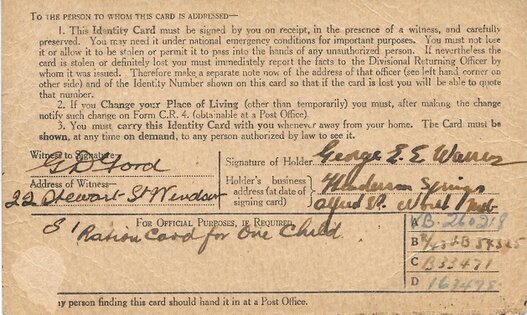 TO THE PERSON TO WHOM THIS CARD IS ADDRESSED—
1. This Identity Card must be signed by you on receipt, in the presence of a witness, and carefully
preserved. You may need it under national emergency conditions for important purposes. You must not lose
it or allow it to be stolen or permit it to pass into the hands of any unauthorized person. If nevertheless the
card is stolen or definitely lost you must immediately report the facts to the Divisional Returning Officer by
whom it was issued. Therefore make a separate note now of the address of that officer (see left hand corner on
other side) and of the Identity Number shown on this card so that if the card is lost you will be able to quote
that number.
2. If you Change your Place of Living (other than temporarily) you must, after making the change
notify such change on Form C.R. 4. (obtainable at a Post Office)
3. You must carry this Identity Card with you whenever away from your home. The Card must be
shown, at any time on demand, to any person authorized by law to see it.
Witness to Signature
Ford
Signature of Holder George E. E.
Address of Witness—
22 Stewart St Windsor
Holder's business
address (at date of
signing card)
Henderson Springs
Alfred St.
FOR OFFICIAL PURPOSES, IF REQUIRED.
Ration Card for One Child
A
B
C B33471
D
person finding this card should hand it in at a Post Office.